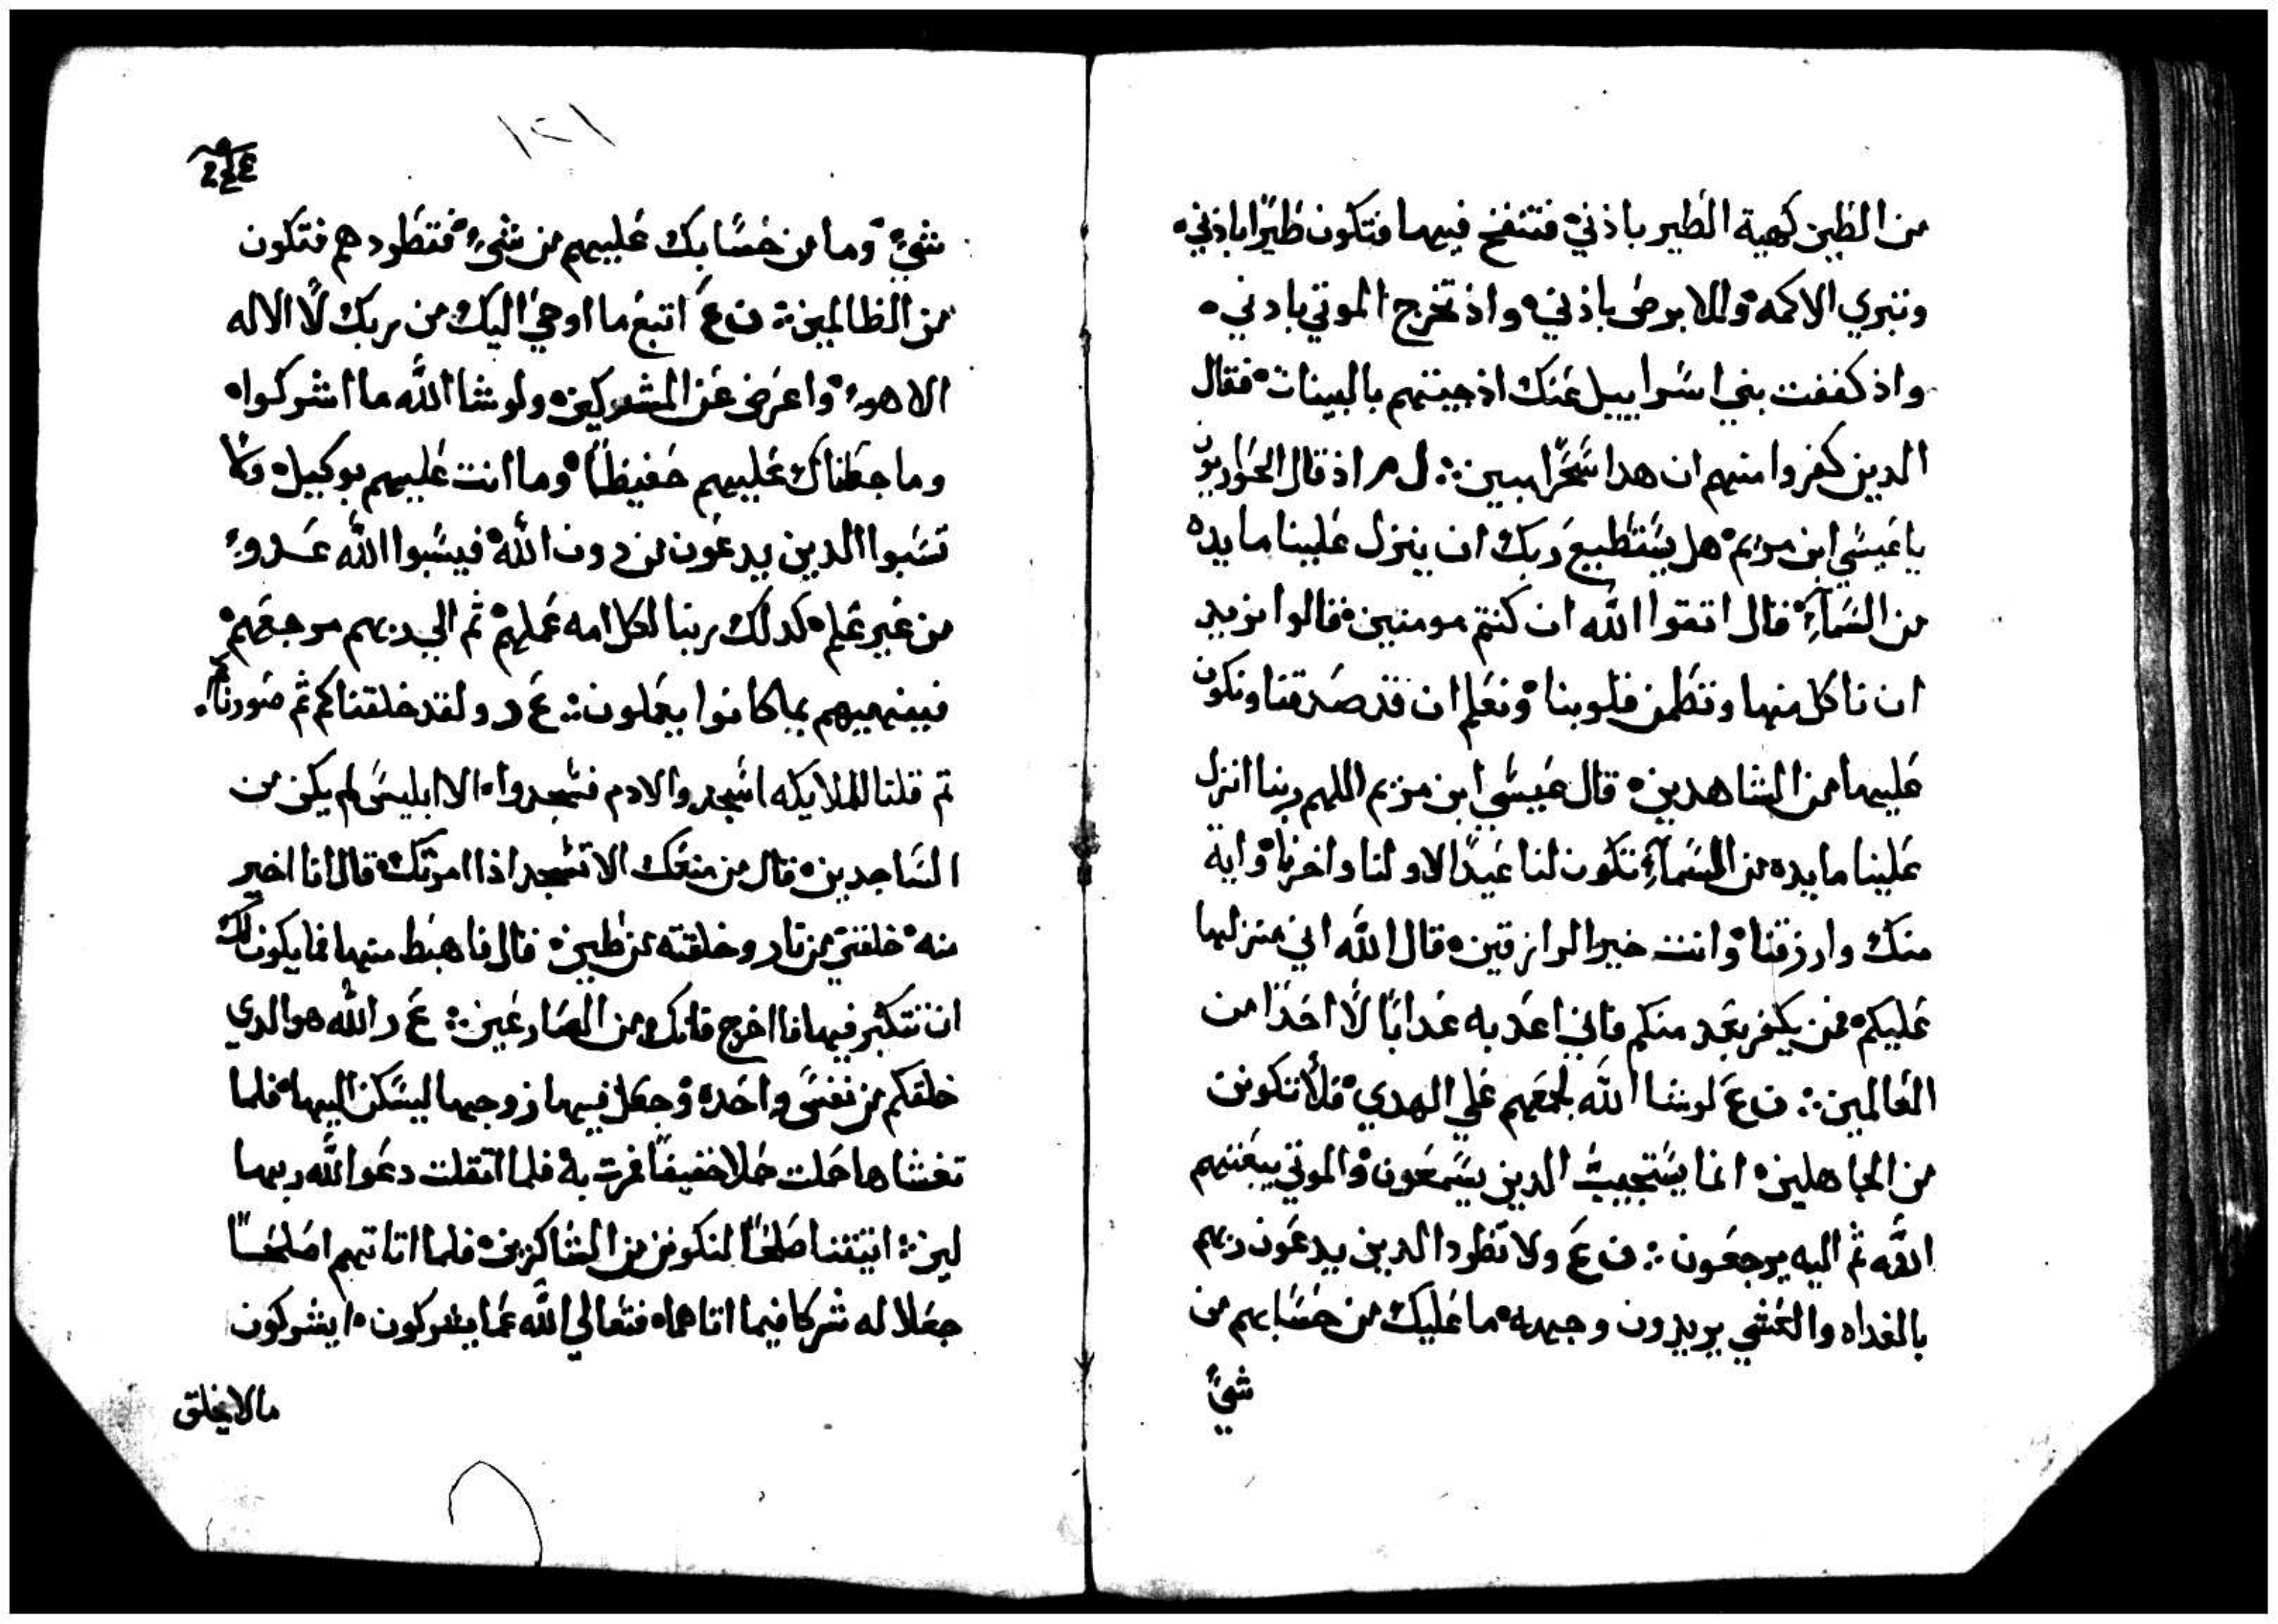 من الطين كهية الطير باذني فتنفخ فيها فتكون طيرًا باذني
وتبري الاكمه والابرص باذني واذ تخرج الموتي بادني
واذ كففت بني اسراييل عنك اذ جيتهم بالبينات فقال
الدين كفروا منهم ان هدا سحرًا مبين ل م اذ قال الحواريون
ياعيسي ابن مريم هل يستطيع ربك ان ينزل علينا مايده
من السمآءِ قال اتقوا الله ان كنتم مومنين قالوا نريد
ان ناكل منها وتطمن قلوبنا ونعلم ان قد صدقتنا ونكون
عليها من الشاهدين قال عيسي ابن مريم اللهم ربنا انزل
علينا مايده من السمآءِ تكون لنا عيدًا لاولنا واخرنا واية
منك وارزقنا وانت خير الرازقين قال الله اني منزلها
عليكم فمن يكفر بعد منكم فاني اعدبه عدابًا لا احدًا من
العالمين ن ع لو شا الله لجمعهم علي الهدي فلا تكونن
من الجاهلين انما يستجيب الدين يسمعون والموتي يبعتهم
الله ثم اليه يرجعون ن ع ولا تطرد الدين يدعون ربهم
بالغداه والعشي يريدون وجهه ما عليك من حسابهم من
شيءً
١٢١
شيءٍ وما من حسابك عليهم من شيءٍ فتطردهم فتكون
من الظالمين ن ع اتبع ما اوحي اليك من ربك لا الاله
الا هو واعرض عن المشركين ولو شا الله ما اشركوا
وما جعلناك عليهم حفيظًا وما انت عليهم بوكيل ولا
تسبوا الدين يدعون من دون الله فيسبوا الله عدو
من غير علم كدلك رينا لكل امه عملهم ثم الي ربهم مرجعهم
فينبهم بما كانوا يعملون ع ر ولقد خلقناكم ثم صورناكم
تم قلنا للملايكه اسجدوا لادم فسجدوا الا ابليس لم يكن من
الساجدين قال من منعك الا تسجد اذا امرتك قال انا اخير
منه خلقتني من نار وخلقته من طين قال فاهبط منها فما يكون لك
ان تتكبر فيها فااخرج فانك من الصارغين ع ر الله هو الدي
خلقكم من نفس واحده وجعل فيها زوجها ليسكن اليها فلما
تغشاها حملت حملا خفيفًا فمرت به فلما اتقلت دعوا الله ربهما
لين اتيتنا صلحًا لنكونن من الشاكرين فلما اتاتهم اصلحًا
جعلا له شركا فيما اتاهما فتعالي الله عما يشركون ايشركون
مالا يخلق